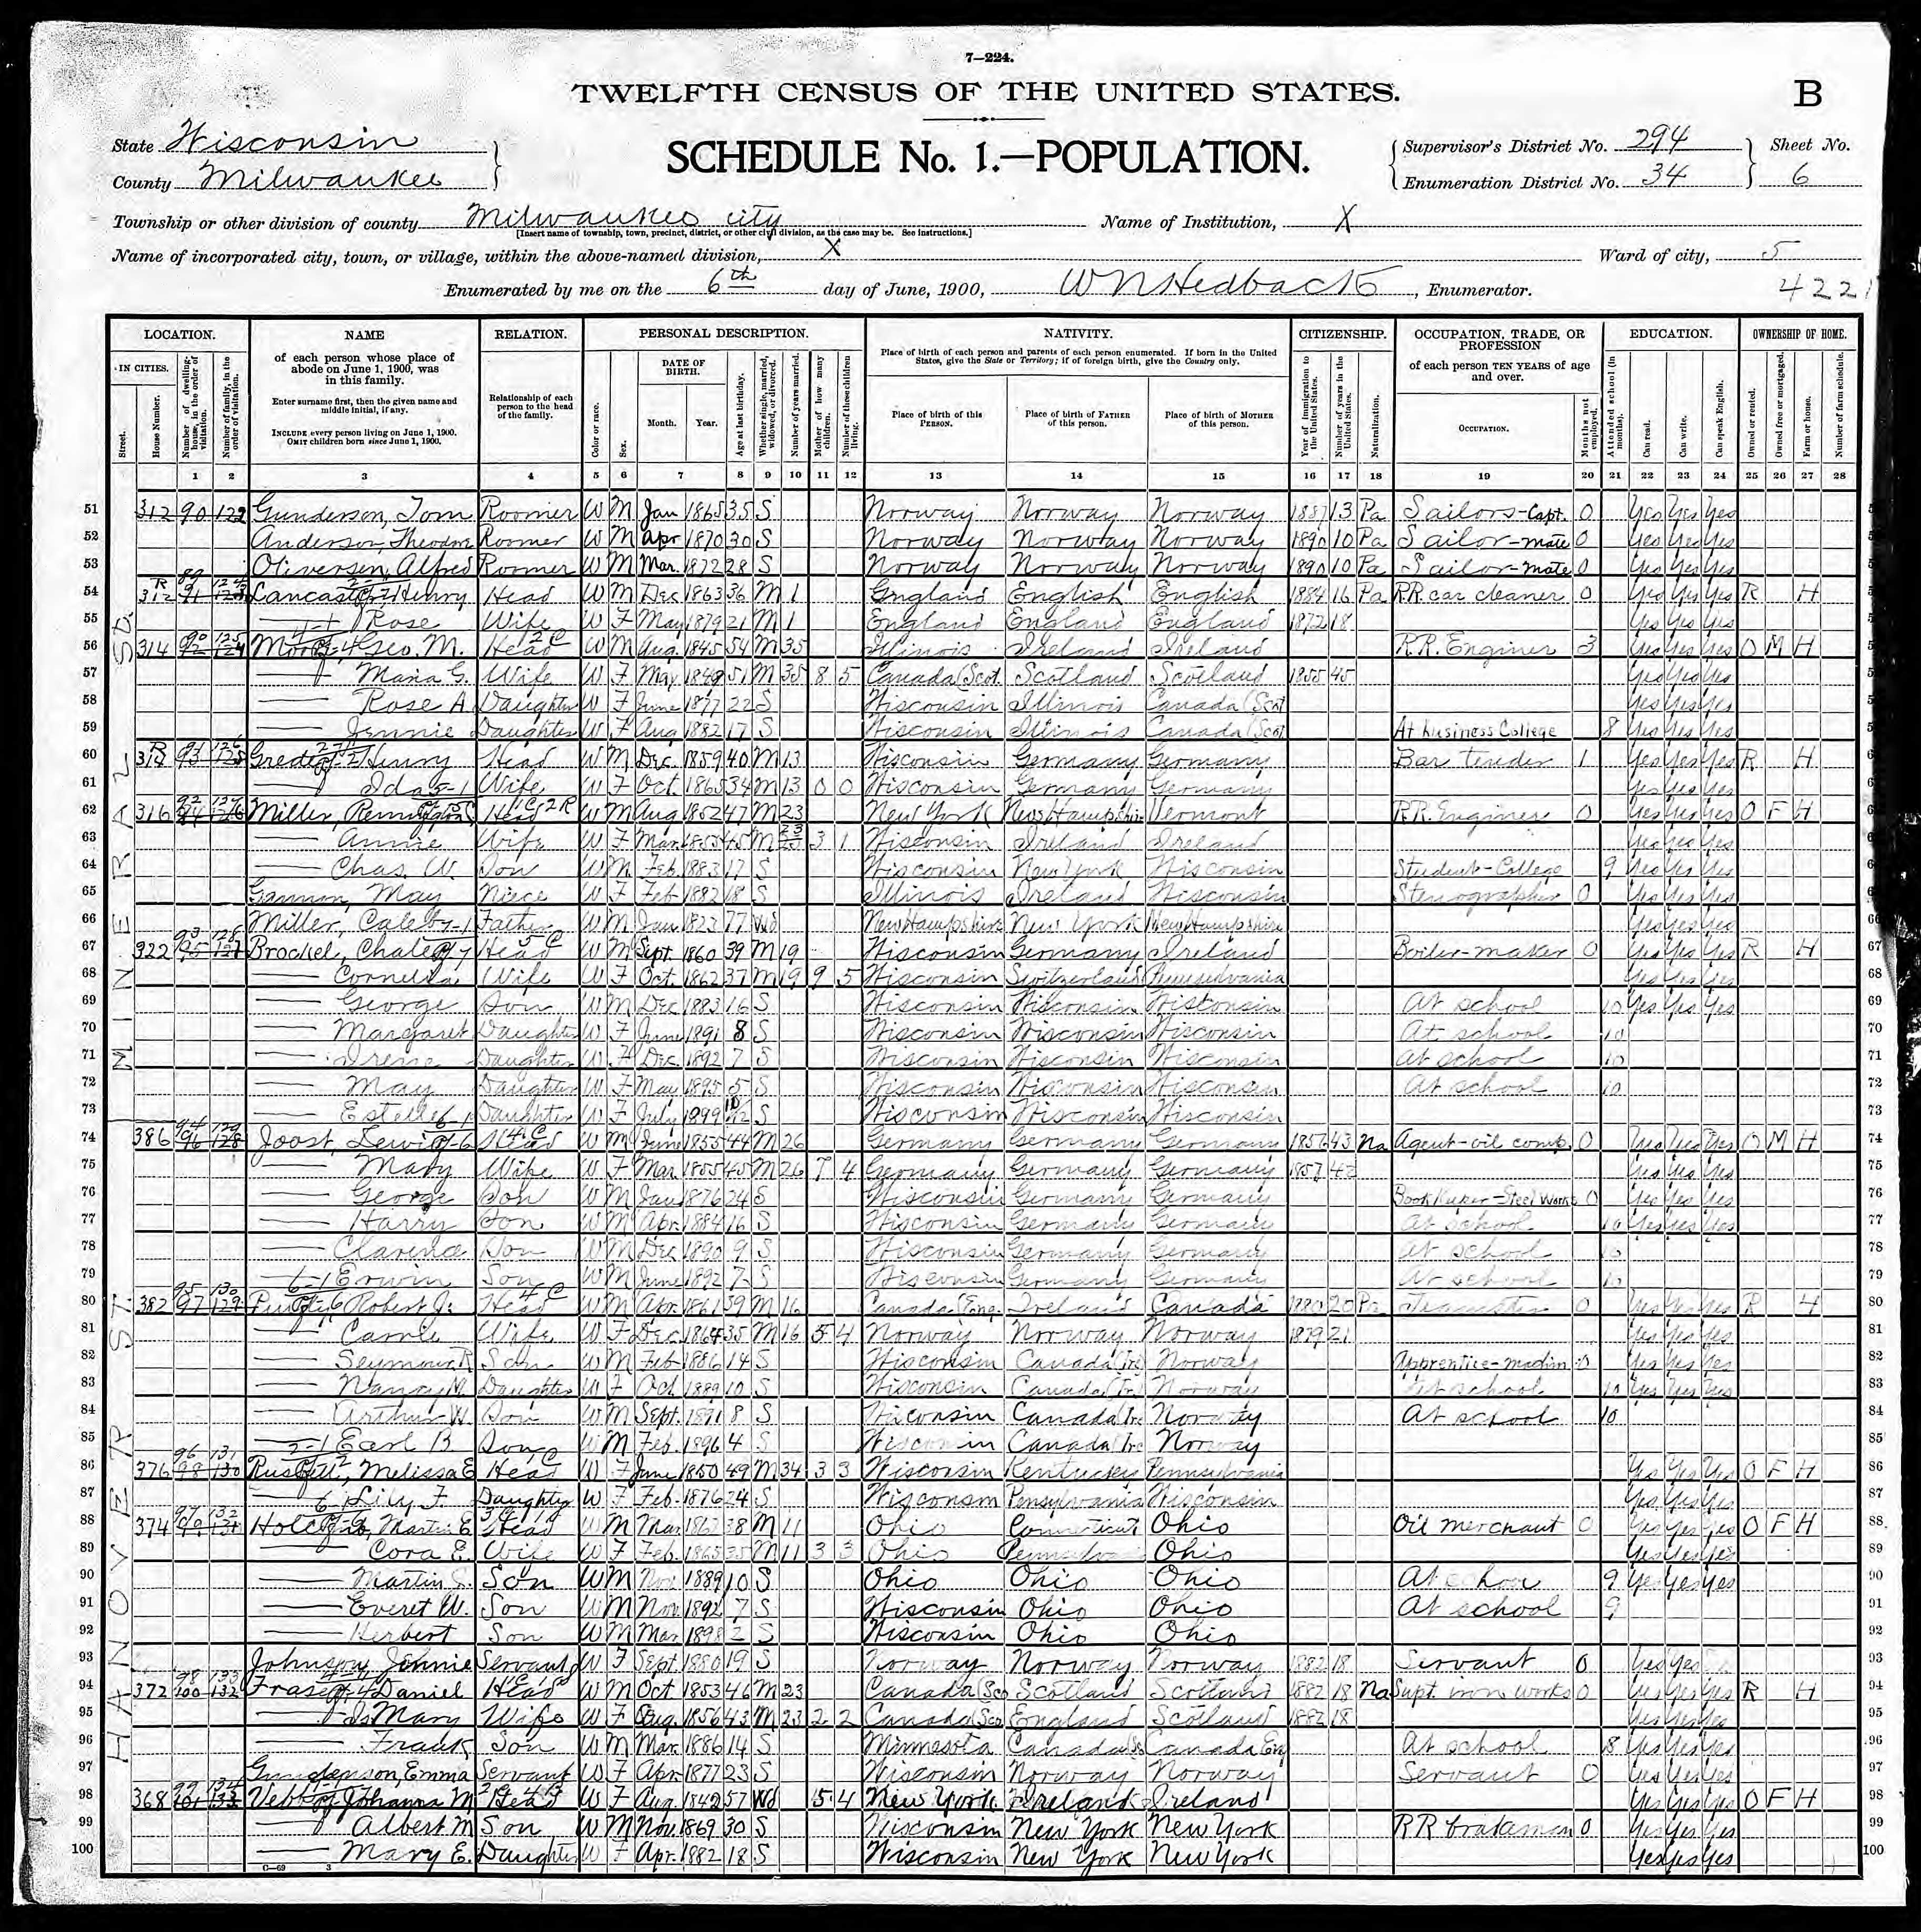 7—224.
TWELFTH CENSUS OF THE UNITED STATES.
B
State Wisconsin
County Milwaukee
SCHEDULE No. 1.—POPULATION.
Supervisor's District No. 294
Enumeration District No. 34
Sheet No.
6
Township or other division of county Milwaukee city
[Insert name of township, town, precinct, district, or other civil division, as the case may be. See instructions.]
Name of Institution, X
Name of incorporated city, town, or village, within the above-named division, X
Ward of city, 5
Enumerated by me on the 6th day of June, 1900, W N Hedback, Enumerator.
4221
LOCATION. NAME RELATION. PERSONAL DESCRIPTION. NATIVITY. CITIZENSHIP. OCCUPATION, TRADE, OR PROFESSION EDUCATION. OWNERSHIP OF HOME.
IN CITIES.
Street.
House Number.
Number of dwelling-house, in the order of visitation.
Number of family, in the order of visitation.
of each person whose place of abode on June 1, 1900, was in this family.
Enter surname first, then the given name and middle initial, if any.
INCLUDE every person living on June 1, 1900.
OMIT children born since June 1, 1900.
Relationship of each person to the head of the family.
Color or race.
Sex.
DATE OF BIRTH.
Month.
Year.
Age at last birthday.
Whether single, married, widowed, or divorced.
Number of years married.
Mother of how many children.
Number of these children living.
Place of birth of each person and parents of each person enumerated. If born in the United States, give the State or Territory; if of foreign birth, give the Country only.
Place of birth of this PERSON.
Place of birth of FATHER of this person.
Place of birth of MOTHER of this person.
Year of immigration to the United States.
Number of years in the United States.
Naturalization.
of each person TEN YEARS of age and over.
OCCUPATION.
Months not employed.
Attended school (in months).
Can read.
Can write.
Can speak English.
Owned or rented.
Owned free or mortgaged.
Farm or house.
Number of farm schedule.
1 2 3 4 5 6 7 8 9 10 11 12 13 14 15 16 17 18 19 20 21 22 23 24 25 26 27 28
MINERAL ST.
HANOVER ST.
51 312 90 122 Gunderson, Tom Roomer W M Jan 1865 35 S Norway Norway Norway 1887 13 Pa Sailors-Capt. 0 Yes Yes Yes
52 Anderson, Theodore Roomer W M Apr 1870 30 S Norway Norway Norway 1890 10 Pa Sailor-mate 0 Yes Yes Yes
53 Oliversen, Alfred Roomer W M Mar. 1872 28 S Norway Norway Norway 1890 10 Pa Sailor-mate 0 Yes Yes Yes
54 312 Lancaster, Henry Head W M Dec 1863 36 M 1 England English English 1884 16 Pa R.R. car cleaner 0 Yes Yes Yes R H
55 Rose Wife W F May 1879 21 M 1 England England England 1872 18 Yes Yes Yes
56 314 Geo. M. Head W M Aug. 1845 54 M 35 Illinois Ireland Ireland R.R. Enginer 3 Yes Yes Yes O M H
57 Maria G. Wife W F May 51 M 35 8 5 Canada (Scot. Scotland Scotland 1855 45 Yes Yes Yes
58 Rose A. Daughter W F June 1877 22 S Wisconsin Illinois Canada (Scot Yes Yes Yes
59 Jennie Daughter W F Aug 1882 17 S Wisconsin Illinois Canada (Scot At business College 8 Yes Yes Yes
60 Henry Head W M Dec. 1859 40 M 13 Wisconsin Germany Germany Bar tender 1 Yes Yes Yes R H
61 Ida Wife W F Oct. 1865 34 M 13 0 0 Wisconsin Germany Germany Yes Yes Yes
62 316 Miller, Head W M Aug 1852 47 M 23 New York New Hampshire Vermont R.R. Enginer 0 Yes Yes Yes O F H
63 Annie Wife W F Mar. 1855 45 M 3 1 Wisconsin Ireland Ireland Yes Yes Yes
64 Chas. W. Son W M Feb. 1883 17 S Wisconsin New York Wisconsin Student-College 9 Yes Yes Yes
65 Gannon, May Niece W F Feb 1882 18 S Illinois Ireland Wisconsin Stenographer 0 Yes Yes Yes
66 Miller, Caleb Father W M Jan. 1823 77 Wd New Hampshire New York New Hampshire Yes Yes Yes
67 322 Brockel, Head W M Sept. 1860 39 M 19 Wisconsin Germany Ireland Boiler-maker 0 Yes Yes Yes R H
68 Cornelia Wife W F Oct. 1862 37 M 19 9 5 Wisconsin Switzerland Pennsylvania Yes Yes Yes
69 George Son W M Dec 1883 16 S Wisconsin Wisconsin Wisconsin At school 10 Yes Yes Yes
70 Margaret Daughter W F June 1891 8 S Wisconsin Wisconsin Wisconsin At school 10
71 Irene Daughter W F Dec. 1892 7 S Wisconsin Wisconsin Wisconsin At school 10
72 May Daughter W F May 1895 5 S Wisconsin Wisconsin Wisconsin At school 10
73 Estelle Daughter W F July 1899 10/12 S Wisconsin Wisconsin Wisconsin
74 386 Joost, Lewis Head W M June 1855 44 M 26 Germany Germany Germany 1856 43 Na Agent-oil comp. 0 Yes Yes Yes O M H
75 Mary Wife W F Mar. 1855 45 M 26 7 4 Germany Germany Germany 1857 42 Yes Yes Yes
76 George Son W M Jan 1876 24 S Wisconsin Germany Germany Book Keeper-Steel Works 0 Yes Yes Yes
77 Harry Son W M Apr. 1884 16 S Wisconsin Germany Germany At school 10 Yes Yes Yes
78 Clarence Son W M Dec 1890 9 S Wisconsin Germany Germany At school 10
79 Erwin Son W M June 1892 7 S Wisconsin Germany Germany At school 10
80 382 Robert J. Head W M Apr. 1861 39 M 16 Canada (Eng. Ireland Canada 1880 20 Pa Teamster 0 Yes Yes Yes R H
81 Carrie Wife W F Dec. 1864 35 M 16 5 4 Norway Norway Norway 1879 21 Yes Yes Yes
82 Seymour R Son W M Feb 1886 14 S Wisconsin Canada (Ire) Norway Apprentice-machin 0 Yes Yes Yes
83 Nancy M. Daughter W F Oct 1889 10 S Wisconsin Canada (Ire) Norway At school 10 Yes Yes Yes
84 Arthur W. Son W M Sept. 1891 8 S Wisconsin Canada (Ire Norway At school 10
85 Earl B. Son W M Feb. 1896 4 S Wisconsin Canada (Ire Norway
86 376 Russell, Melissa E Head W F June 1850 49 M 34 3 3 Wisconsin Kentucky Pennsylvania Yes Yes Yes O F H
87 Lily F. Daughter W F Feb. 1876 24 S Wisconsin Pensylvania Wisconsin Yes Yes Yes
88 374 Holcomb, Martin E. Head W M Mar 1862 38 M 11 Ohio Connecticut Ohio Oil merchant 0 Yes Yes Yes O F H
89 Cora E. Wife W F Feb. 1865 35 M 11 3 3 Ohio Pennsylvania Ohio Yes Yes Yes
90 Martin S. Son W M Nov 1889 10 S Ohio Ohio Ohio At school 9 Yes Yes Yes
91 Everet W. Son W M Nov. 1892 7 S Wisconsin Ohio Ohio At school 9
92 Herbert Son W M Mar 1898 2 S Wisconsin Ohio Ohio
93 Johnson, Jennie Servant W F Sept 1880 19 S Norway Norway Norway 1882 18 Servant 0 Yes Yes
94 372 Fraser, Daniel Head W M Oct 1853 46 M 23 Canada (Sco Scotland Scotland 1882 18 Na Supt. iron works 0 Yes Yes Yes R H
95 Mary Wife W F Aug. 1856 43 M 23 2 2 Canada (Sco England Scotland 1882 18 Yes Yes Yes
96 Frank Son W M Mar. 1886 14 S Minnesota Canada (Sc Canada Eng At school 8 Yes Yes Yes
97 Emma Servant W F Apr. 1877 23 S Wisconsin Norway Norway Servant 0 Yes Yes Yes
98 368 Johanna M Head W F Aug. 1842 57 Wd 5 4 New York Ireland Ireland Yes Yes Yes O F H
99 Albert M Son W M Nov. 1869 30 S Wisconsin New York New York RR brakeman 0 Yes Yes Yes
100 Mary E. Daughter W F Apr. 1882 18 S Wisconsin New York New York Yes Yes Yes
C—69 3